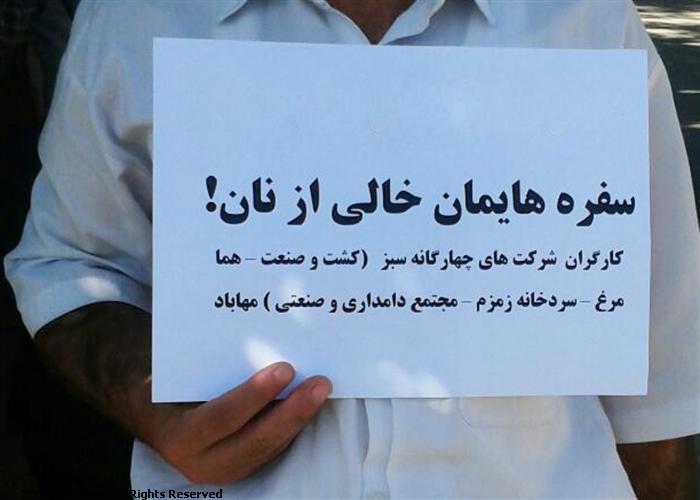 سفره هایمان خالی از نان!
کارگران شرکت های چهارگانه سبز (کشت و صنعت – هما
مرغ – سردخانه زمزم – مجتمع دامداری و صنعتی ) مهاباد
Rights Reserved